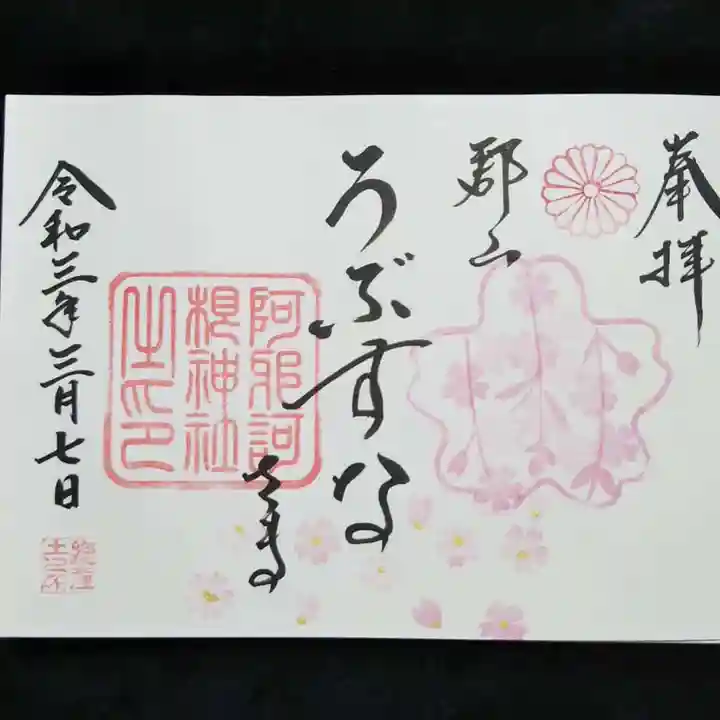 奉拝
郡山
うぶすな
さま
阿邪訶
根神社
之印
令和三年三月七日